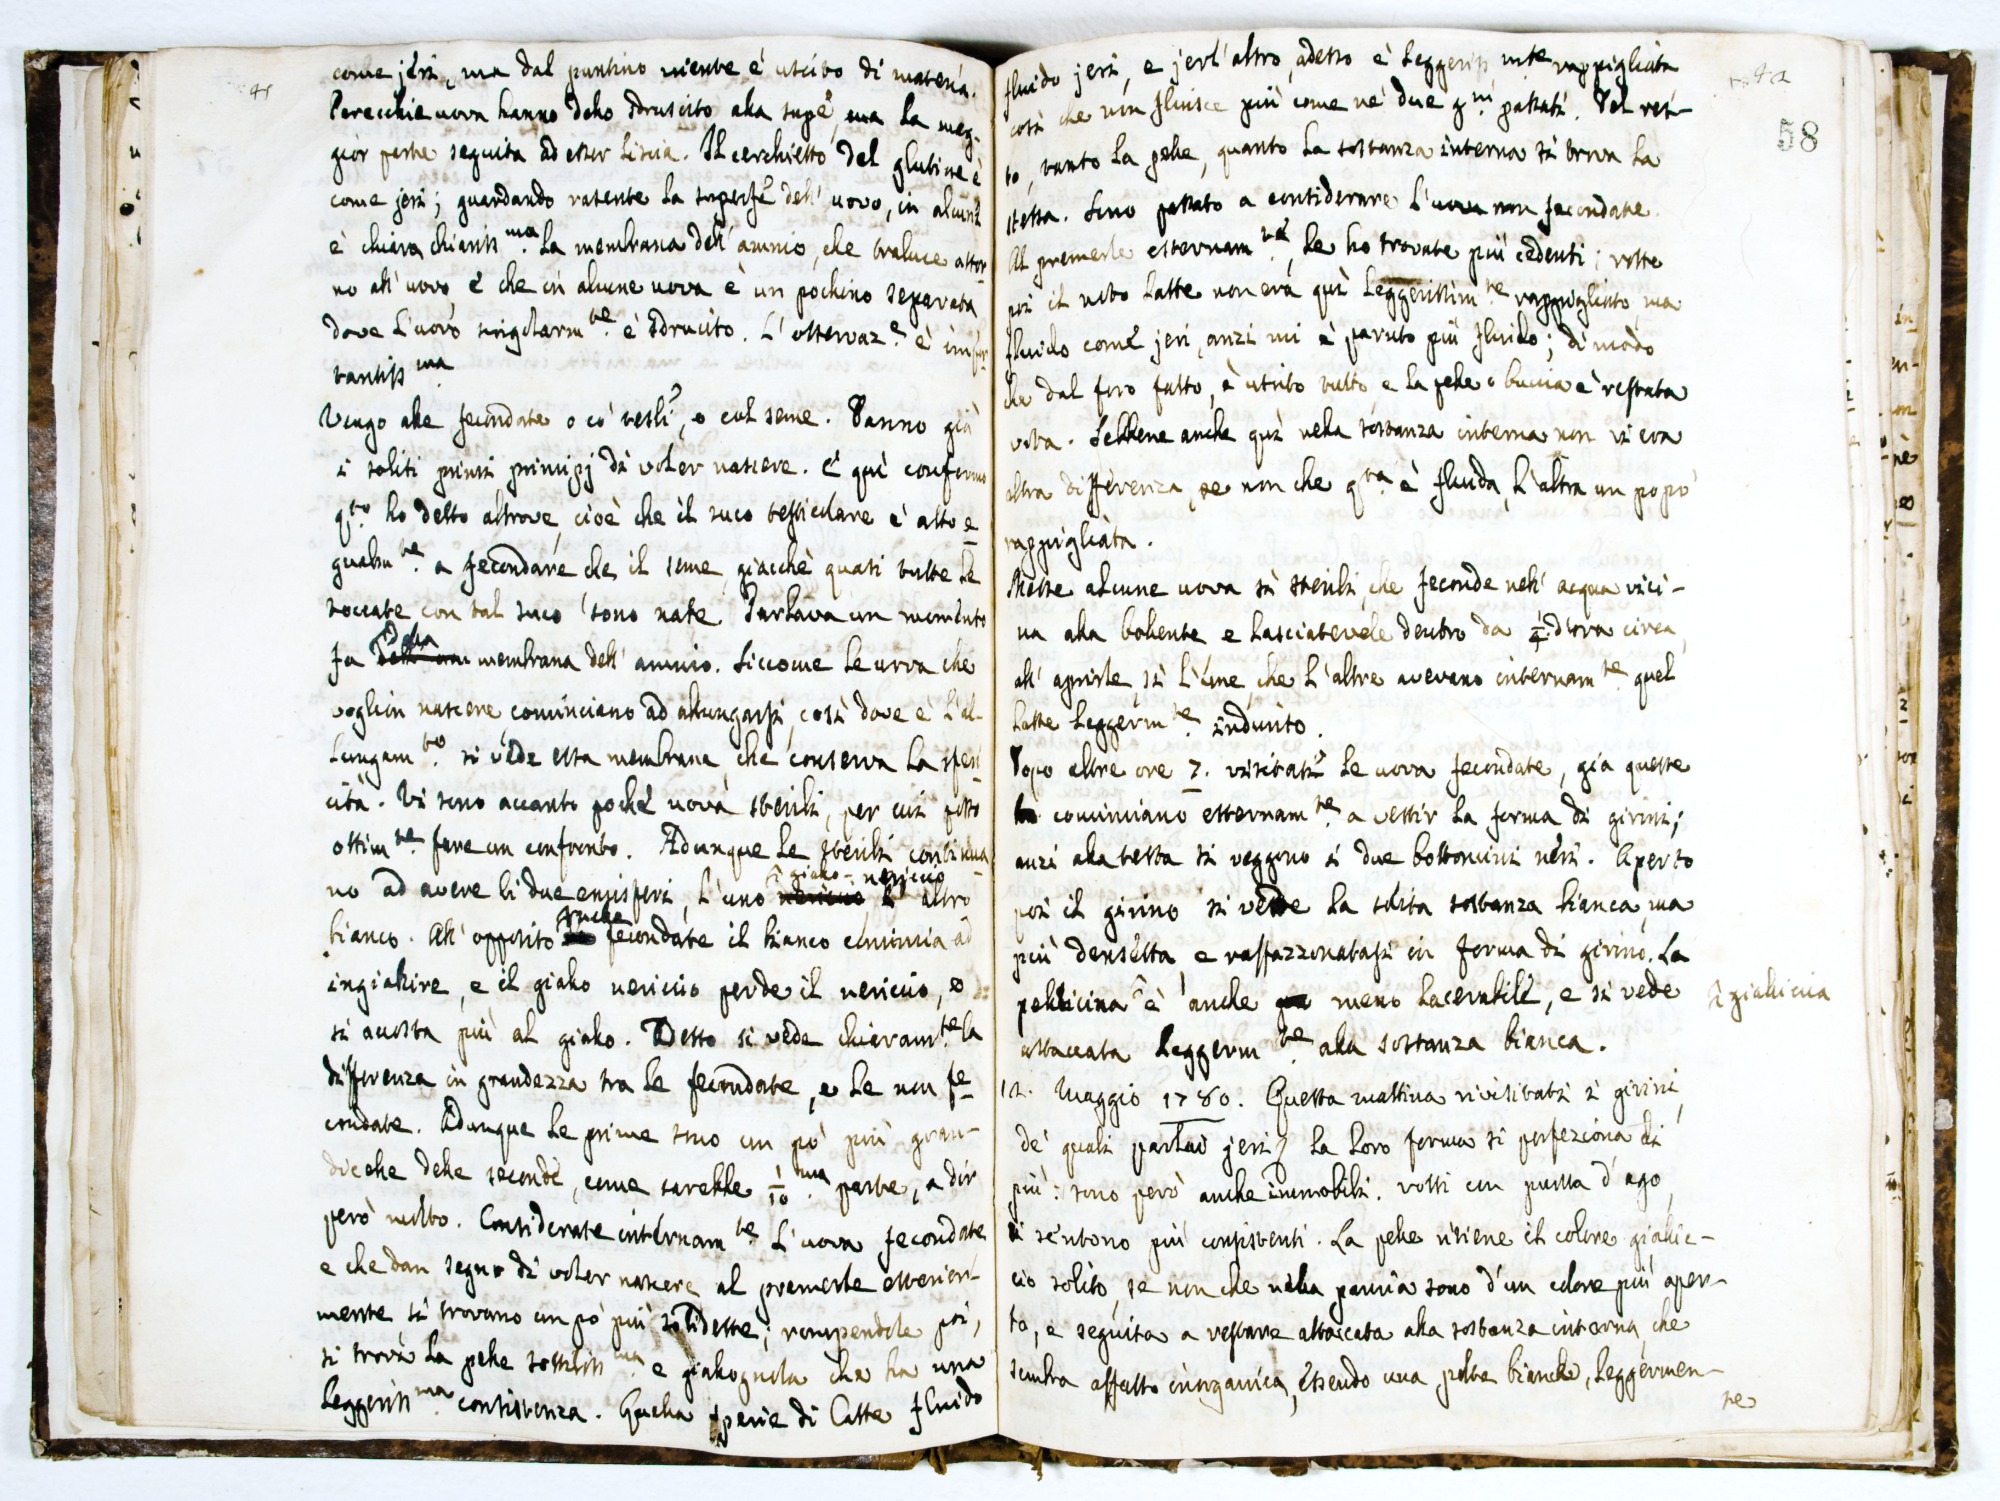 come jeri, ma dal puntino niente è uscito di materia.
Parecchie uova hanno dello sdruscito alla supe, ma la mag-
gior parte seguita ad esser liscia. Il cerchietto del glutine è
come jeri; guardando ratente la superfe dell' uovo, in alcuni
è chiara chiariss.ma la membrana dell' amnio, che traluce attor
no all' uovo, e che in alcune uova è un pochino separata
dove l'uovo singolarm.te è sdrucito. L' osservaz.e è impor
tantiss.ma
Vengo alle fecondate o co' testi, o col seme. Danno già
i soliti primi principj di voler nascere. E quì confermo
q.to ho detto altrove, cioè che il suco testicolare è atto e
gualm.te a fecondare che il seme, giacchè quasi tutte le
toccate con tal suco sono nate. Parlava un momento
fa della membrana dell' amnio. Siccome le uova che
voglion nascere cominciano ad allungarsi, così dove è l'al-
lungam.to si vede essa membrana che conserva la sferi
cità. Vi sono accanto poche uova sterili, per cui posso
ottim.te fare un confronto. Adunque le sterili continua-
no ad avere li due emisferi, l'uno giallo-nericcio, l' altro
bianco. All' opposito anche fecondate il bianco comincia ad
ingiallire, e il giallo nericcio perde il nericcio, e
si accosta più al giallo. Desso si vede chiaram.te la
differenza in grandezza tra le fecondate, e le non fe
condate. Adunque le prime sono un pò più gran-
dicelle delle seconde, come sarebbe 1/10 ma parte, a dir
però molto. Considerate internam.te l' uova fecondate
e che dan segno di voler nascere al premerle esterior-
mente si trovano un pò più solidette; rompendole poi,
si trova la pelle sottiliss.ma e giallognola che ha una
leggeriss.ma consistenza. Quella specie di latte fluido
4a
58
fluido jeri, e jerl' altro, adesso è leggeriss.mte rappigliata
così che non fluisce più come ne' due g.ni passati. Del res-
to, tanto la pelle, quanto la sostanza interna si trova la
stessa. Sono passato a considerare l'uova non fecondate.
Al premerle esternam.te, le ho trovate più cedenti; rotte
poi il noto latte non era quì leggerissim.te rappigliato, ma
fluido come jeri, anzi mi è paruto più fluido; di modo
che dal foro fatto, è uscito tutto, e la pelle o buccia è restata
vota. Sebbene anche quì nella sostanza interna non vi era
altra differenza, se non che q.sta è fluida, l' altra un po po'
rappigliata.
Messe alcune uova sì sterili, che feconde nell' acqua vici-
na alla bollente e lasciatevele dentro da 1/4 d'ora circa,
all' aprirle, sì l'une, che l' altre avevano internam.te quel
latte leggerm.te indurito.
Dopo altre ore 7. visitati le uova fecondate, già queste
cominciano esternam.te a vestir la forma di girini;
anzi alla testa si veggono i due bottoncini neri. Aperto
poi il girino si vede la solita sostanza bianca, ma
più densetta e raffazzonatasi in forma di girino. La
pellicina è anche meno lacerabile, e si vede
gialliccia
attaccata leggerm.te alla sostanza bianca.
12. Maggio 1780. Questa mattina rivisitati i girini,
de' quali parlai jeri, la loro forma si perfeziona di
più: sono però anche immobili. rotti con punta d' ago,
si sentono più consistenti. La pelle ritiene il colore giallic-
cio solito, se non che nella pancia sono d'un colore più aper-
to, e seguita a restare attaccata alla sostanza interna, che
sembra affatto inorganica, essendo una polte bianca, leggermen-
te